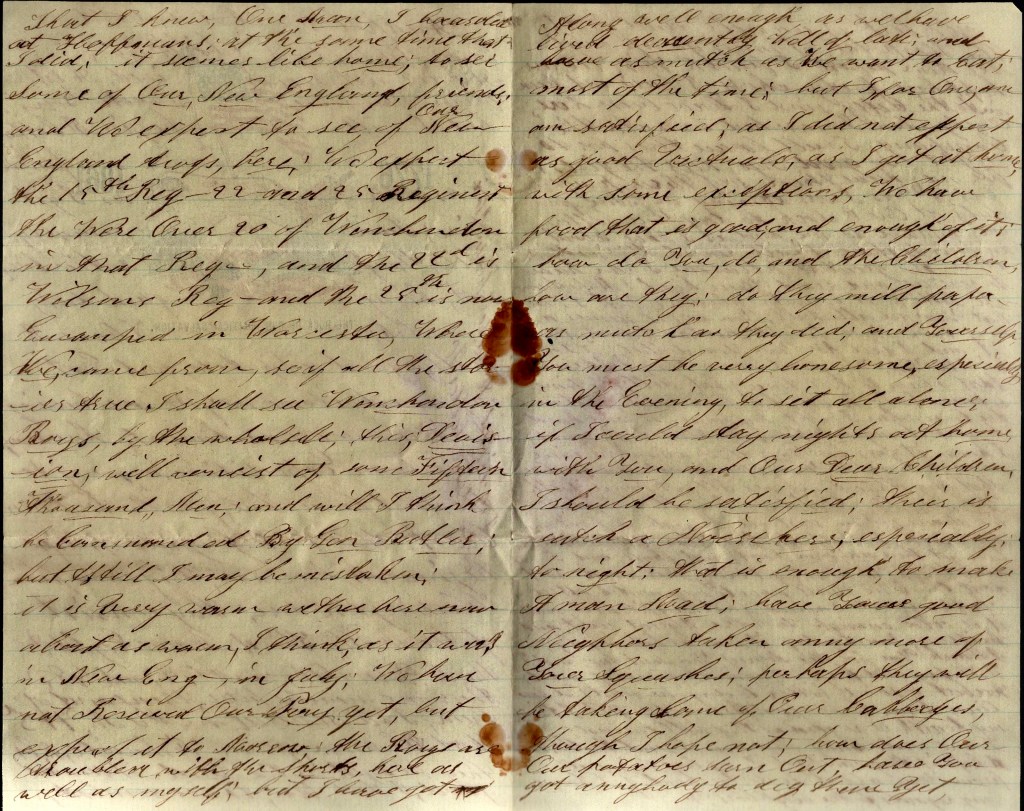 That I knew, One Man, I boarded
at Hoppmans; at the same time that
I did; it seemes like home; to see
some of Our, New England, friends,
and We expect to see, of Our New
England troops, here; We expect
the 15th Reg - 22 and 25 Regiment
the Were Over 20 of Winchendon
in that Reg -, and the 22d is
Wilsons Reg - and the 25th is now
Encamped in Worcester, Where
We, came from, so if all the sto-
-ies true I shall see Winchendon
Boys, by the wholsale; this, Devis-
-ion; will concist of some Fifteen
Thousand, Men; and will I think
be Commanded By Gen Butler;
but Still I may be mistaken;
it is Very warm wether here now
about as warm, I think; as it was
in New Eng - in July; We have
not Received Our Pay yet, but
expect it to Morrow the Boys are
troubled with the shorts, here as
well as myself; but I have got
Along well enough, as we have
lived decently well of late; and
have as mutch as We want to Eat;
most of the time; but I, for One, am
am satisfied, as I did not expect
as good Victuals, as I get at home
with some exceptions, We have
food that is good, and enough of it;
how do You, do, and the Children,
how are they; do they miss papa
as mutch as they did; and Yourself
You must be verry lonesome, especialy
in the Evening, to set all alone;
if I could stay nights at home
with You, and Our Dear Children,
I should be satisfied; their is
sutch a Noise here, especialy
to night; that is enough, to make
A man Mad; have Youre good
Neighbors taken anny more of
Your Squashes; perhaps they will
be takeing some of Our Cabbages,
though I hope not; how does Our
Our potatoes turn Out, have You
got annybody to dig them Yet,